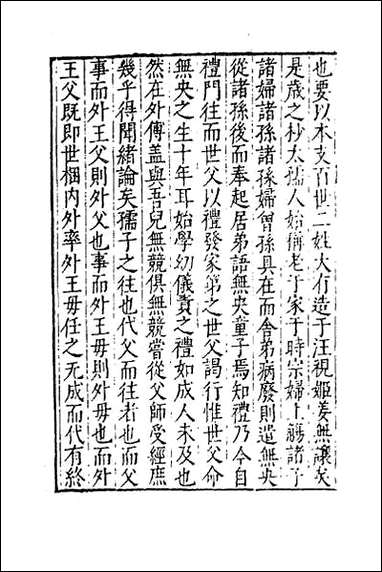 也要以本支百世二姓大有造于汪視姬姜無讓矣
是歲之杪太孺人始稱老于家于時宗婦上觴諸子
諸婦諸孫諸孫婦曾孫具在而舍弟病廢則遣無央
從諸孫後而奉起居弟語無央童子焉知禮乃今自
禮門往而世父以禮發家弟之世父謁行惟世父命
無央之生十年耳始學幼儀責之禮如成人未及也
然在外傅蓋與吾兒無競俱無競嘗從父師受經庶
幾乎得聞緒論矣孺子之往也代父而往者也而父
事而外王父則外父也事而外王母則外母也而外
王父既即世梱內外率外王母任之无成而代有終